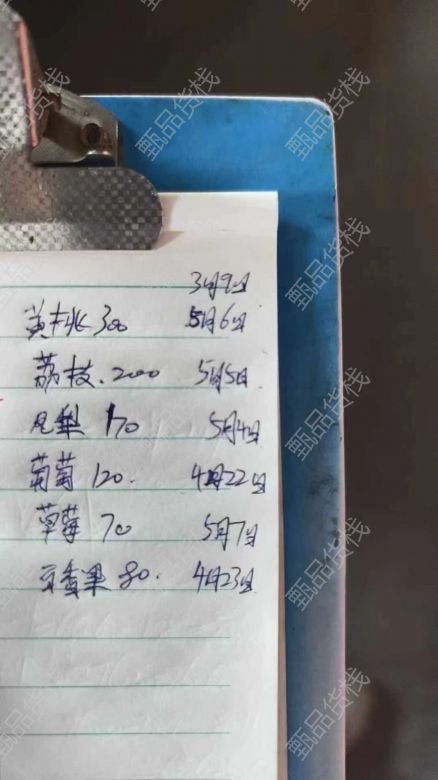 3月9日
黄桃300 5月6日
荔枝.2000 5月5日
凤梨 170 5月4日
葡萄 120. 4月22日
草莓 70 5月7日
百香果 80. 4月23日
甄品货栈